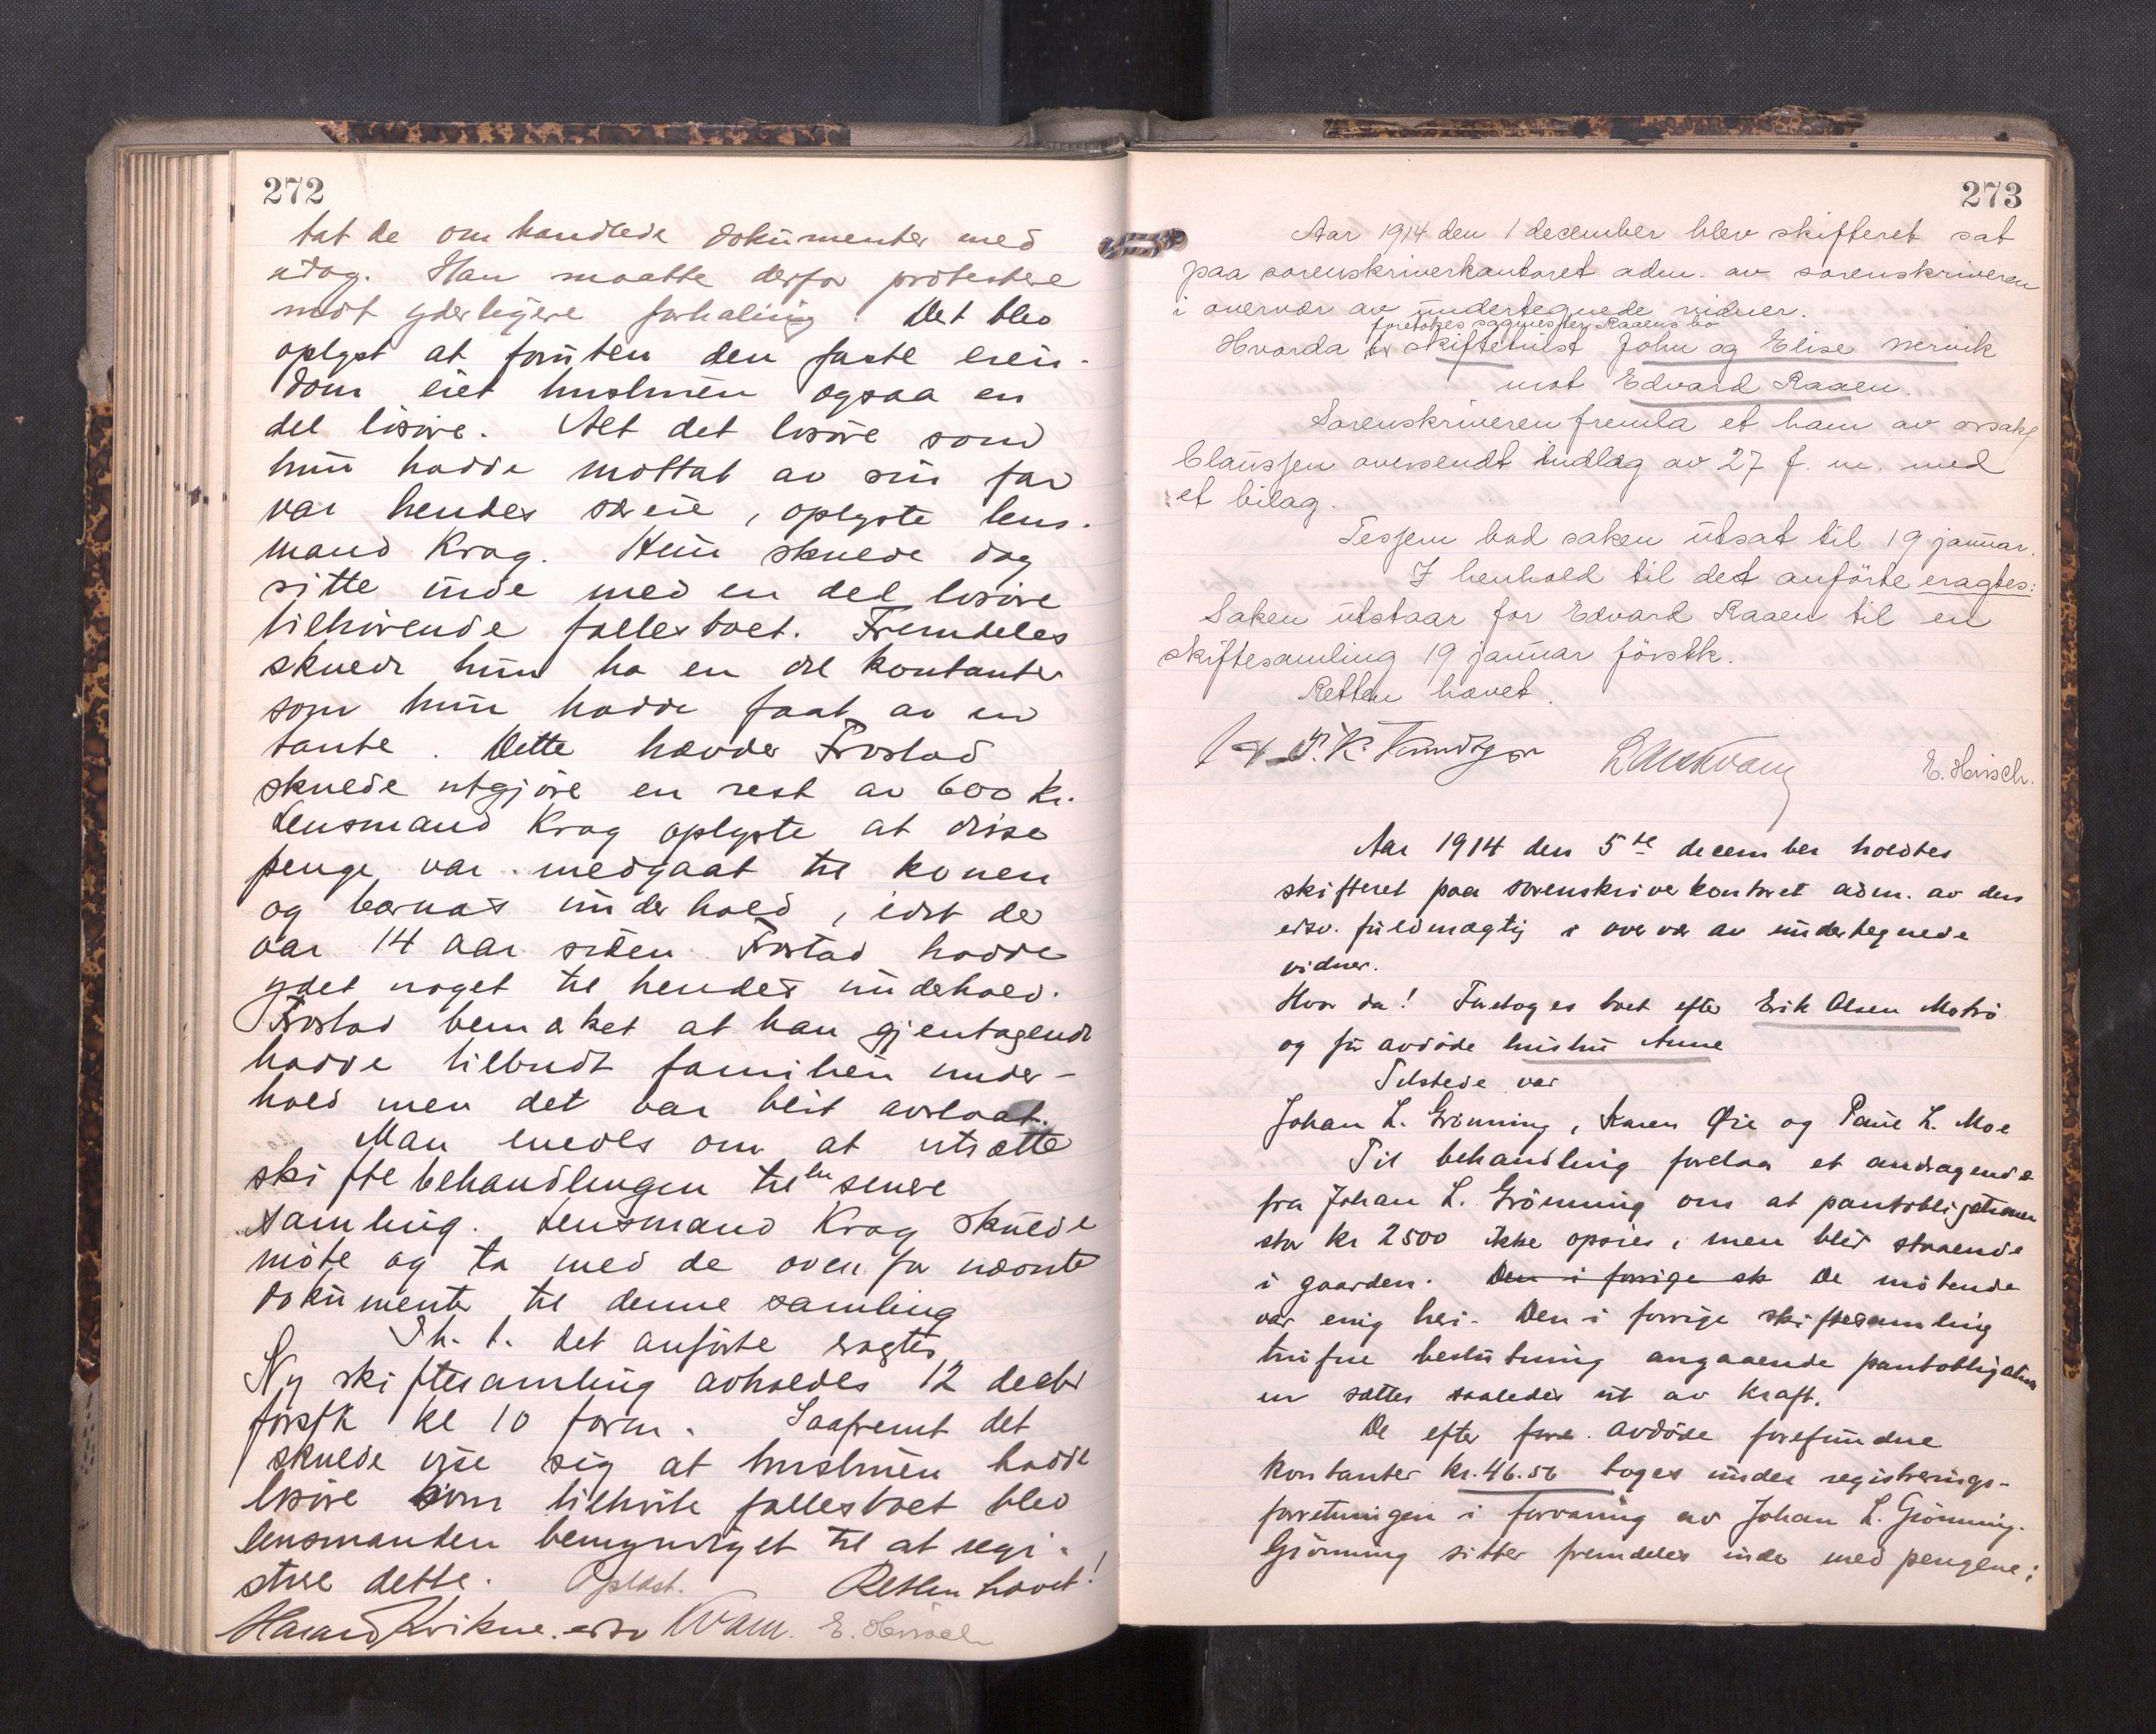 272
tat de omhandlede dokumenter med
idag. Han maatte derfor protestere
mot yderligere forhaling. Det blev
oplyst at foruten den faste eien-
dom eiet hustruen ogsaa en
del lösöre. Alt det lösöre som
hun hadde mottat av sin far
var hendes særeie, oplyste lens-
mand Krog. Hun skulde dog
sitte inde med en del lösöre
tilhörende fællesboet. Fremdeles
skulde hun ha en del kontanter
som hun hadde faat av en
tante. Dette hævder Frostad
skulde utgjöre en rest av 600 kr.
Lensmand Krog oplyste at disse
penge var medgaat til konen
og barnas underhold, idet det
var 14 aar siden Frostad hadde
ydet noget til hendes underhold.
Frostad bemærket at han gjentagende
hadde tilbudt familien under-
hold men det var blit avslaat.
Man enedes om at utsætte
skiftebehandlingen til en senere
samling. Lensmand Krog skulde
möte og ta med de ovenfor nævnte
dokumenter til denne samling
I h. t. det anförte eragtes
Ny skiftesamling avholdes 12 decbr
förstk kl 10 form. Saafremt det
skulde vise sig at hustruen hadde
lösöre som tilhörte fællesboet blev
lensmanden bemyndiget til at regi-
strere dette. Oplæst. Retten hævet!
Harald Kvikne. edsv Kvam. E. Hirsch
273
Aar 1914 den 1 december blev skifteret sat
paa sorenskriverkontoret adm. av sorenskriveren
i overvær av undertegnede vidner.
foretokes sagnes Raaens bo
Hvorda skiftetvist John og Elise Mervik
mot Edvard Raaen.
Sorenskriveren fremla et ham av orsakf
Claussen oversendt indlæg av 27 f. m. med
et bilag.
Tessem bad saken utsat til 19 januar.
I henhold til det anförte eragtes:
Saken utstaar for Edvard Raaen til en
skiftesamling 19 januar förstk.
Retten hævet.
E. Hirsch.
Aar 1914 den 5te december holdtes
skifteret paa sorenskriverkontoret adm. av den
edsv. fuldmægtig i overvær av undertegnede
vidner.
Hvor da! Foretoges boet efter Erik Olsen Moträ
og för avdöde hustru Anne
Tilstede var
Johan L. Grönning, Karen Øie og Paul L. Moe
Til behandling forelaa et andragende
fra Johan L. Grönning om at pantobligationen
stor kr 2500 ikke opsies, men blir staaende
i gaarden. Den i forrige sk De mötende
var enig heri. Den i forrige skiftesamling
trufne beslutning angaaende pantobligation
en sættes saaledes ut av kraft.
De efter forr. avdöde forefundne
kontanter kr. 46.56 toges under registrerings-
forretningen i forvaring av Johan L. Grönning.
Grönning sitter fremdeles inde med pengene;